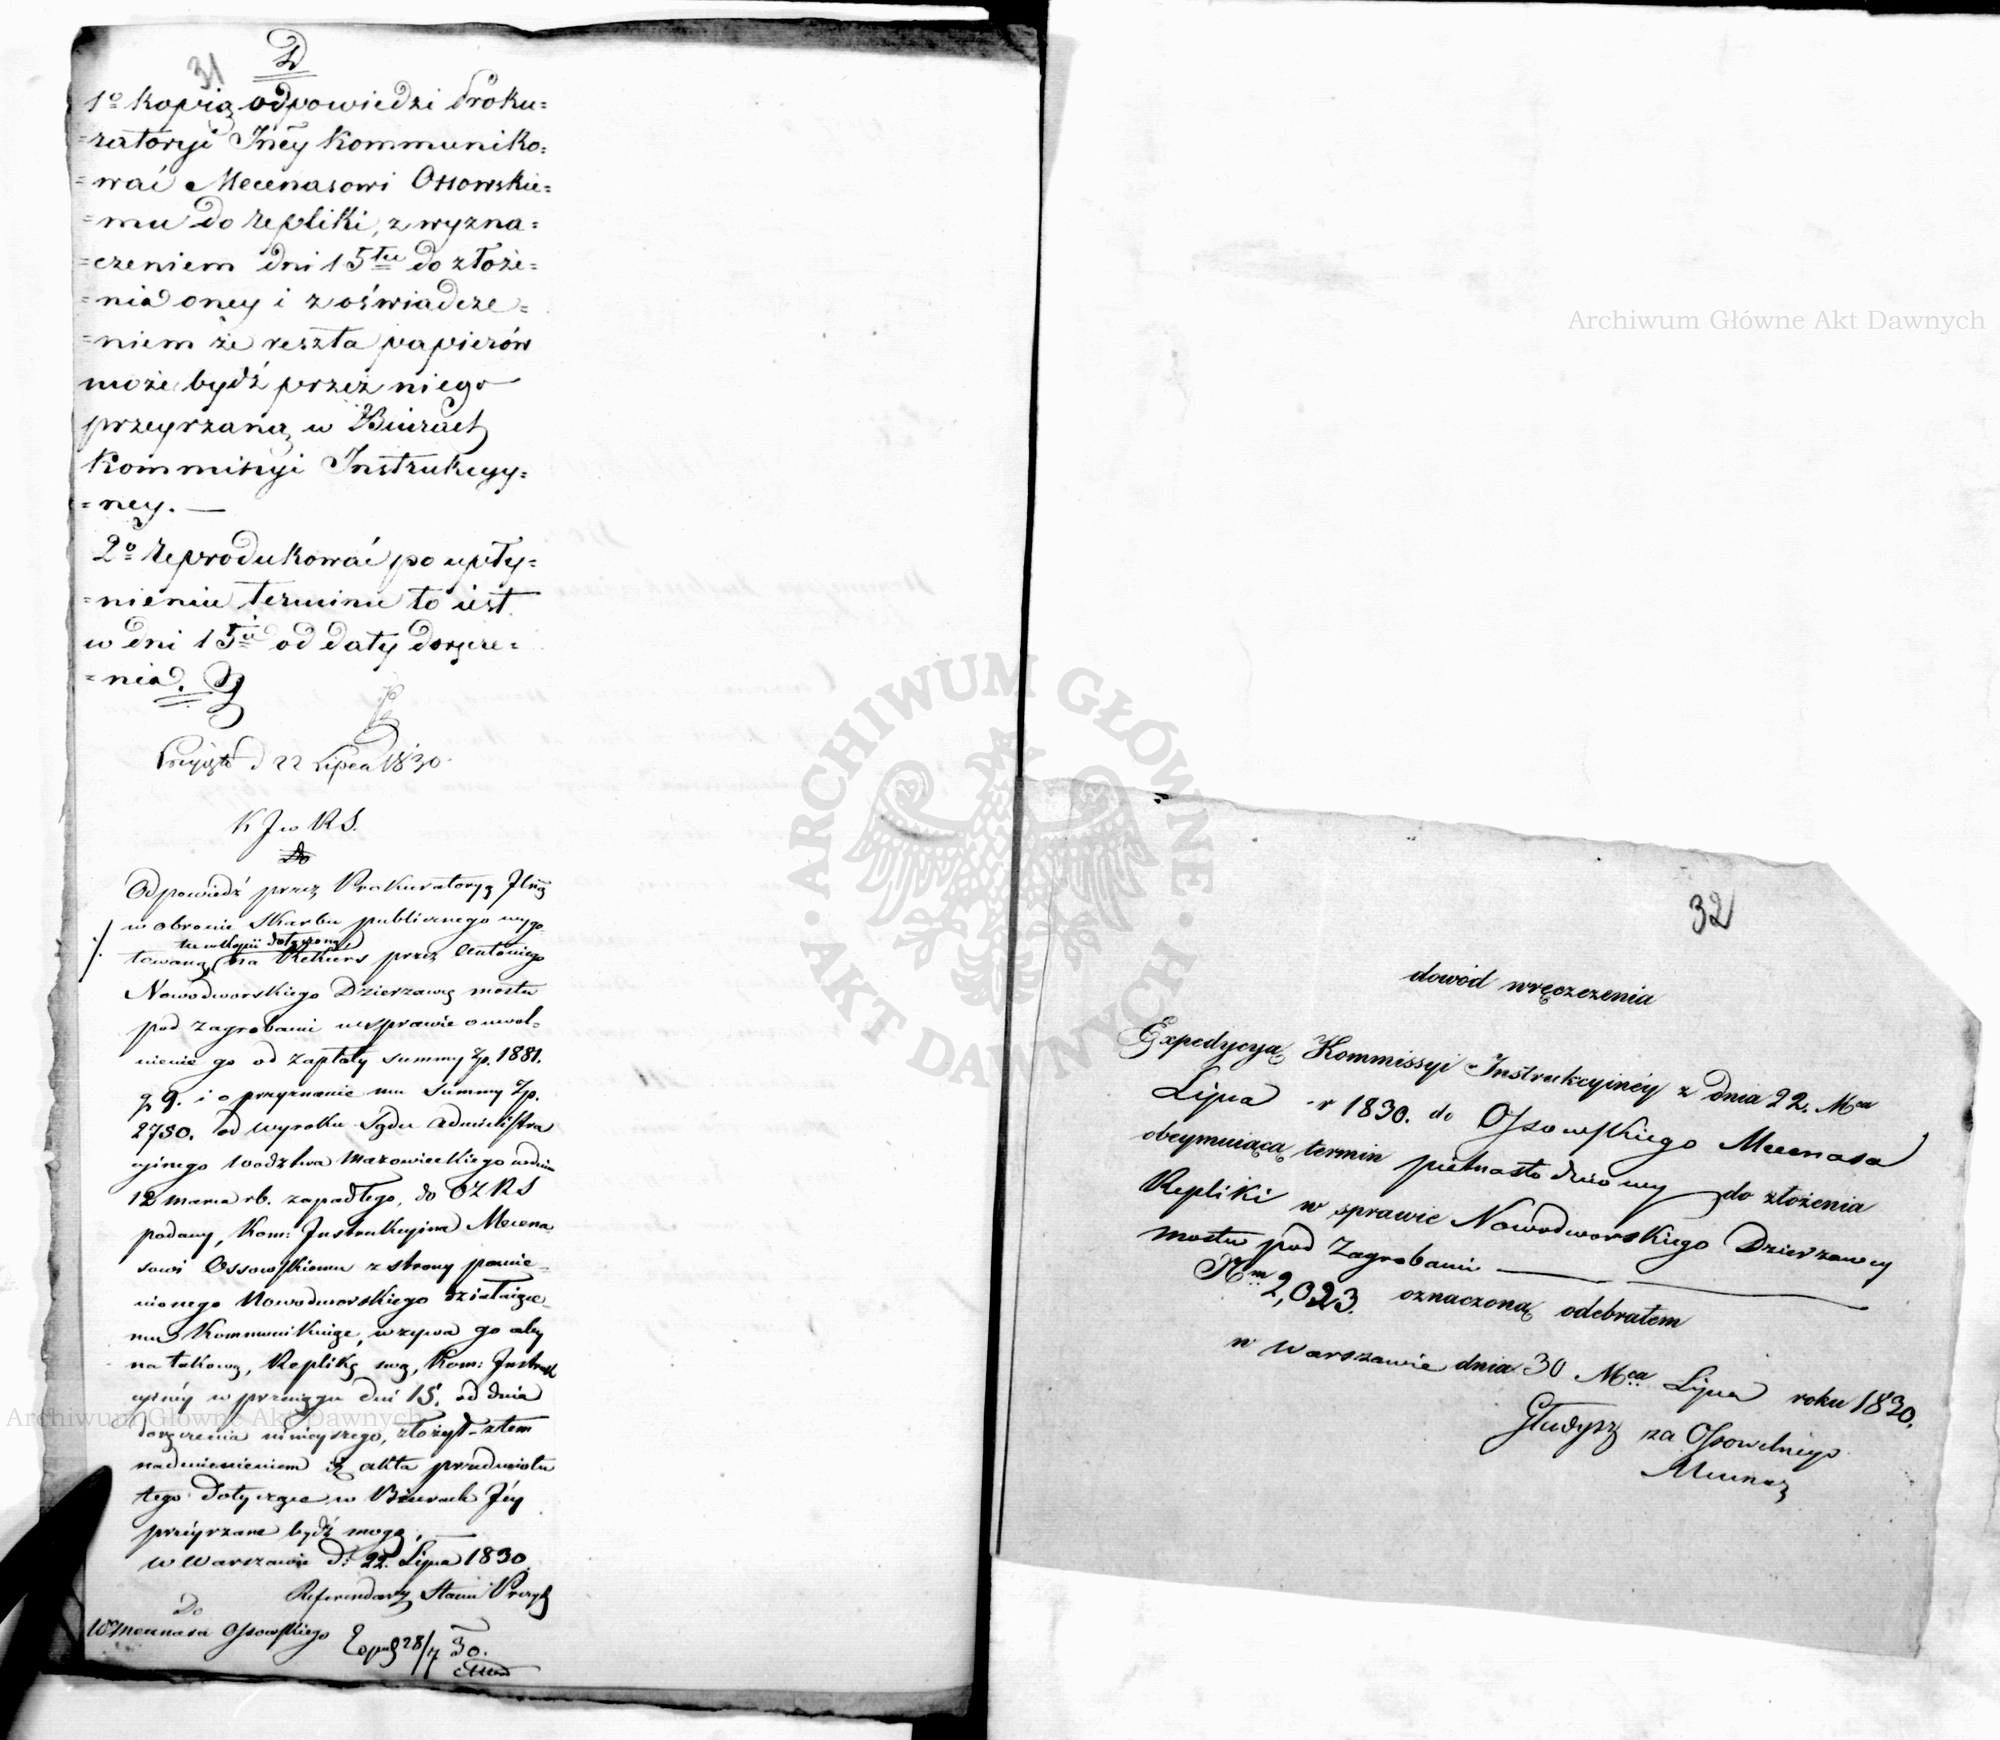 31
D
1º Kopią odpowiedzi Proku=
=ratoryi Jnéy kommuniko=
=wać Mecenasowi Ossowskie=
=mu do repliki, z wyzna=
=czeniem dni 15tu do złoże=
=nia oney i z oświadcze=
=niem że reszta papierów
może bydź przez niego
przeyrzaną w Biurach
Kommissyi Instrukcyy=
=ney. —
2º reprodukować po upły=
=nieniu terminu to iest
w dni 15 od daty doręcze=
=nia.
Przyjęto d 22 Lipca 1830
K J w R S.
Do
Odpowiedź przez Prokuratoryą Jlną
w obronie Skarbu publicznego wygo
tu w kopii dołączoną
towaną, na Rekurs przez Antoniego
Nowodworskiego Dzierzawcę mostu
pod Zagrobami w sprawie o uwol-
nienie go od zapłaty summy Zp. 1881.
g 9. i o przyznanie mu Summy Zp.
2750. od wyroku Sądu Administra
cyinego Wodztwa Mazowieckiego w dniu
12 marca rb. zapadłego, do OZRS
podany, Kom: Instrukcyina Mecena
sowi Ossowskiemu z strony pomie-
nionego Nowodworskiego działaiące-
mu Kommunikuiąc, wzywa go aby
na takową, Replikę swą, Kom: Instruk
cyinéy w przeciągu dni 15. od dnia
doręczenia ninieyszego, złożył - z tem
nadmienieniem iż akta przedmiotu
tego dotyczące w Biurach Jéy
przeyrzane bydź mogą. —
w Warszawie d: 22. Lipca 1830
Referendarz Stanu
Do
Wo Mecenasa Ossowskiego
28/7 30.
32
dowód wręczenia
Expedycyą Kommissyi Instrukcyinéy z dnia 22. Mca
Lipca r 1830. do Ossowskiego Mecenasa
obeymuiącą termin pietnasto dniowy do złożenia
Repliki w sprawie Nowodworskiego Dzierzawcy
mostu pod Zagrobami
Nrm 2,023. oznaczoną odebrałem
w Warszawie dnia 30 Mca Lipca roku 1830.
za Ossowskiego
Mecenasa
Archiwum Główne Akt Dawnych
ARCHIWUM GŁÓWNE · AKT DAWNYCH ·
Archiwum Główne Akt Dawnych